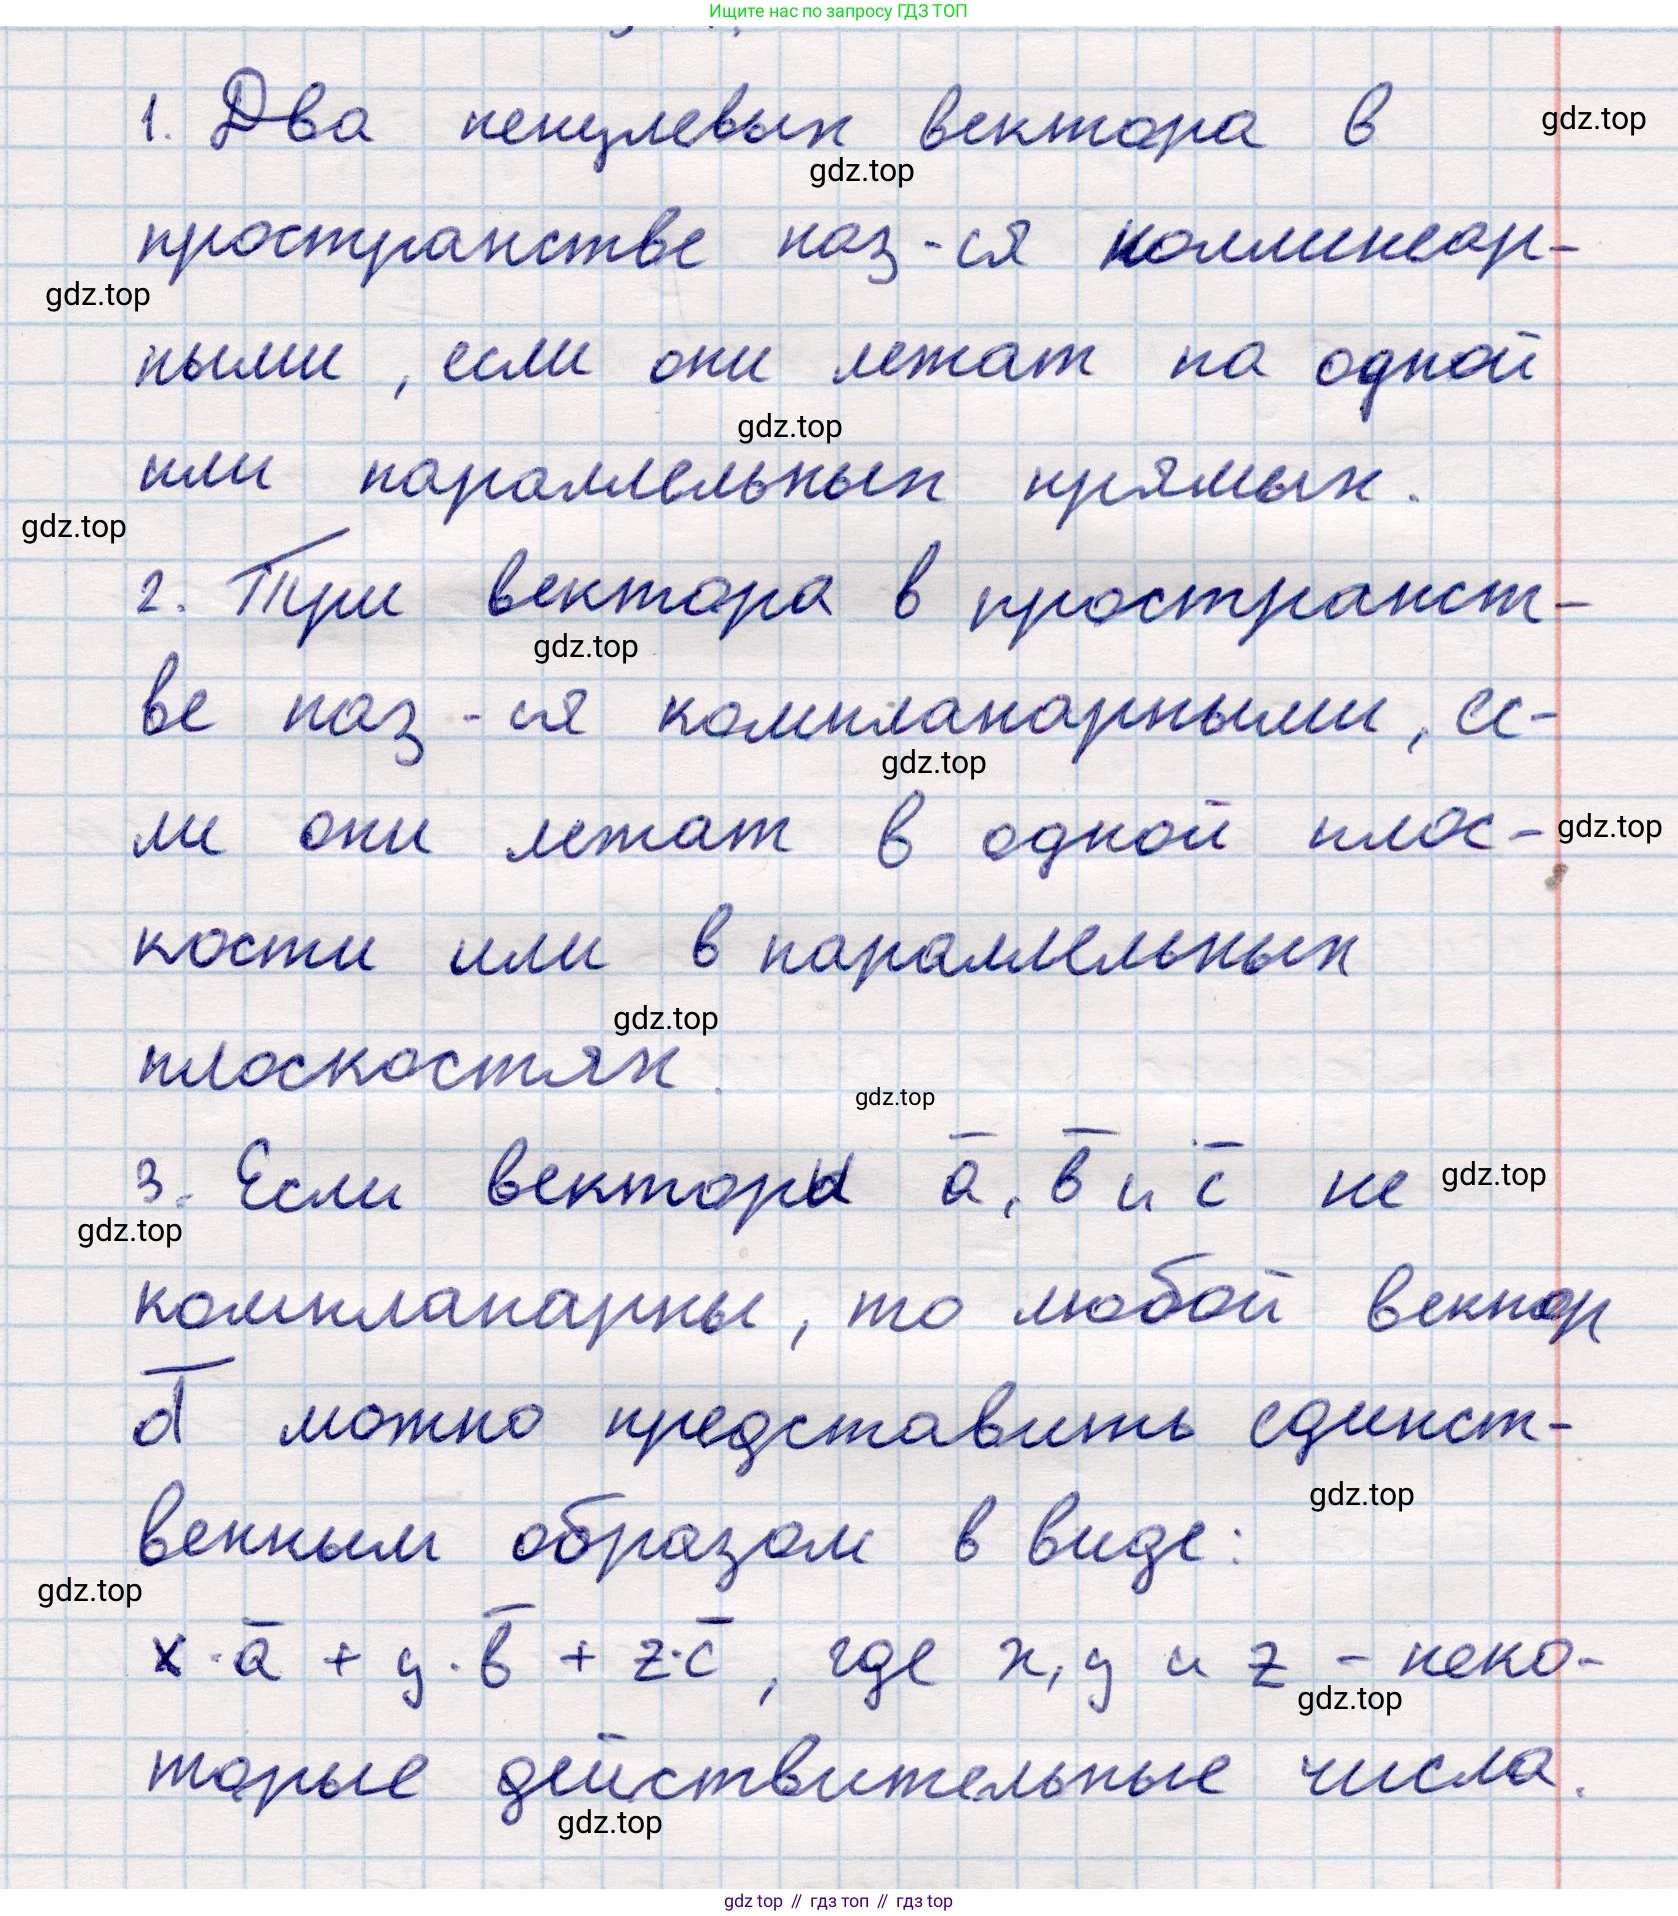 Ищите нас по запросу ГДЗ ТОП
1. Два ненулевых вектора в
gdz.top
gdz.top
пространстве наз-ся коллинеар-
gdz.top
ными, если они лежат на одной
gdz.top
или параллельных прямых.
gdz.top
2. Три вектора в пространст-
gdz.top
ве наз-ся компланарными, ес-
gdz.top
ли они лежат в одной плос-
gdz.top
кости или в параллельных
gdz.top
плоскостях.
gdz.top
3. Если векторы a̅, b̅ и c̅ не
gdz.top
gdz.top
компланарны, то любой вектор
d̅ можно представить единст-
gdz.top
венным образом в виде:
gdz.top
x·a̅ + y·b̅ + z·c̅, где x, y и z - неко-
gdz.top
торые действительные числа.
gdz.top
gdz top // гдз топ // гдз top